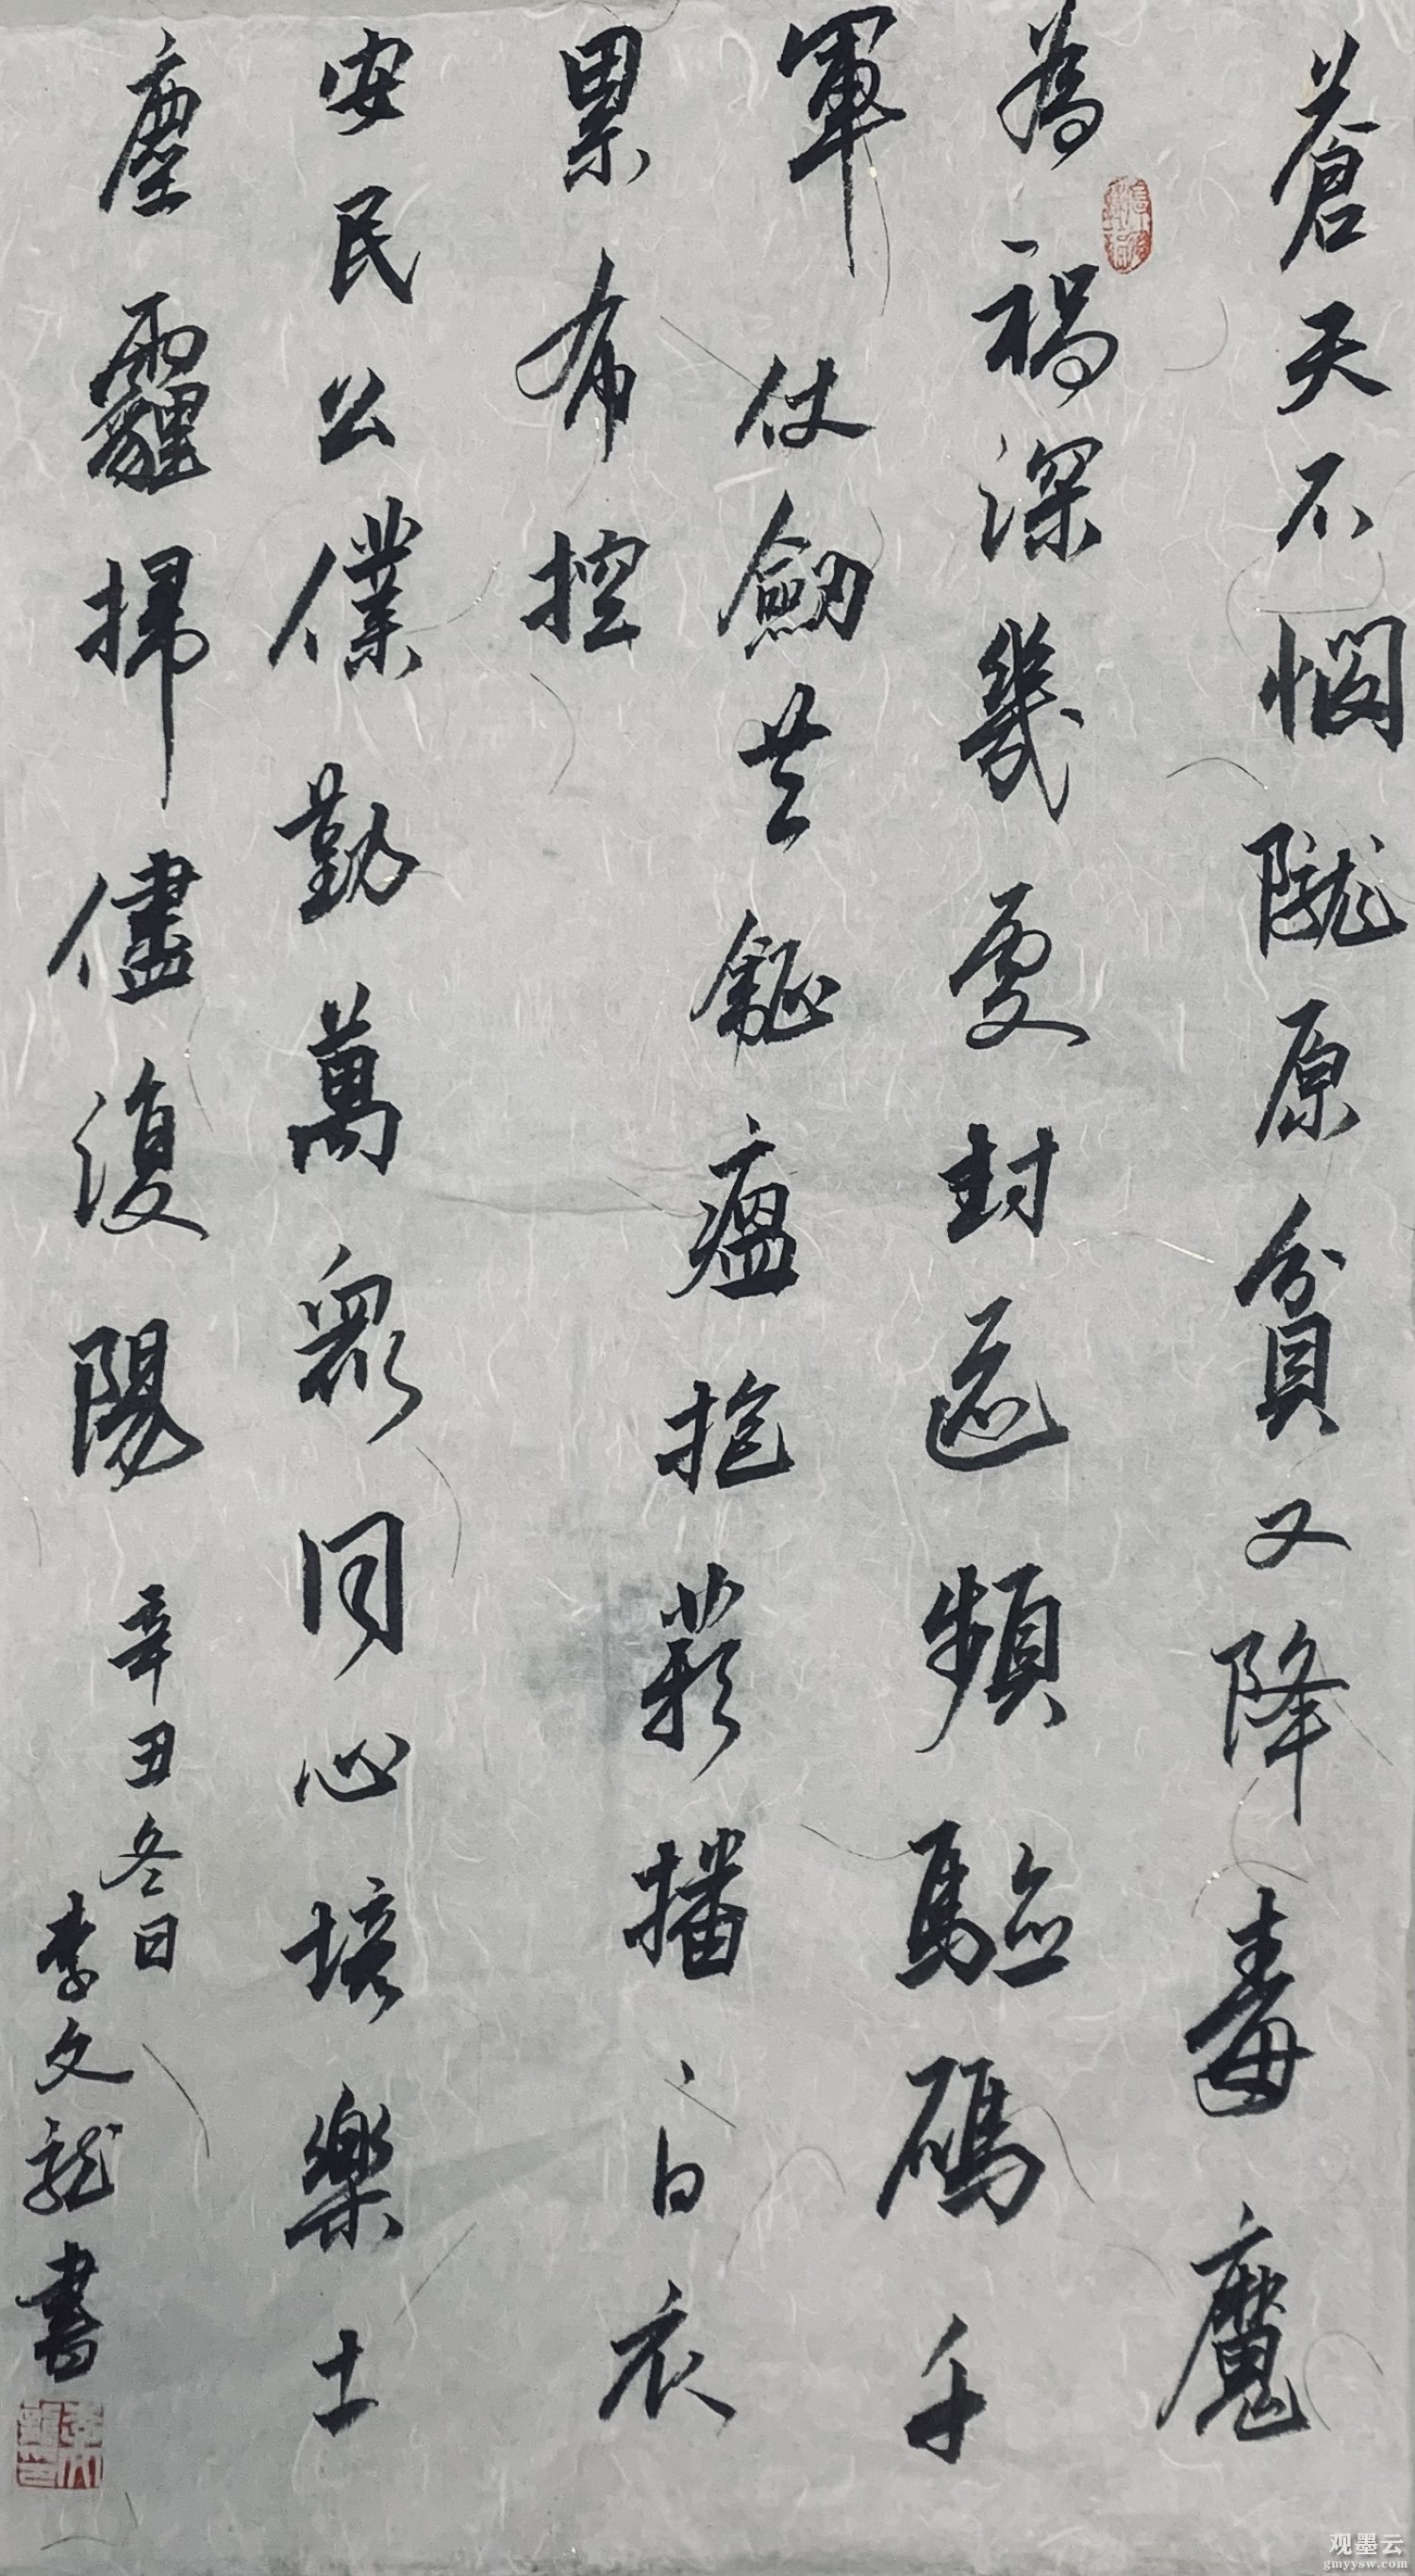 蒼天不憫陇原貧又降毒魔
為禍深幾處封返頻驗碼千
軍仗劍共征瘟抱薪播白衣
累布控
安民公僕勤萬衆同心培樂土
塵霾掃儘復陽
辛丑冬日
李文龙書
观墨云
gmyysw.com